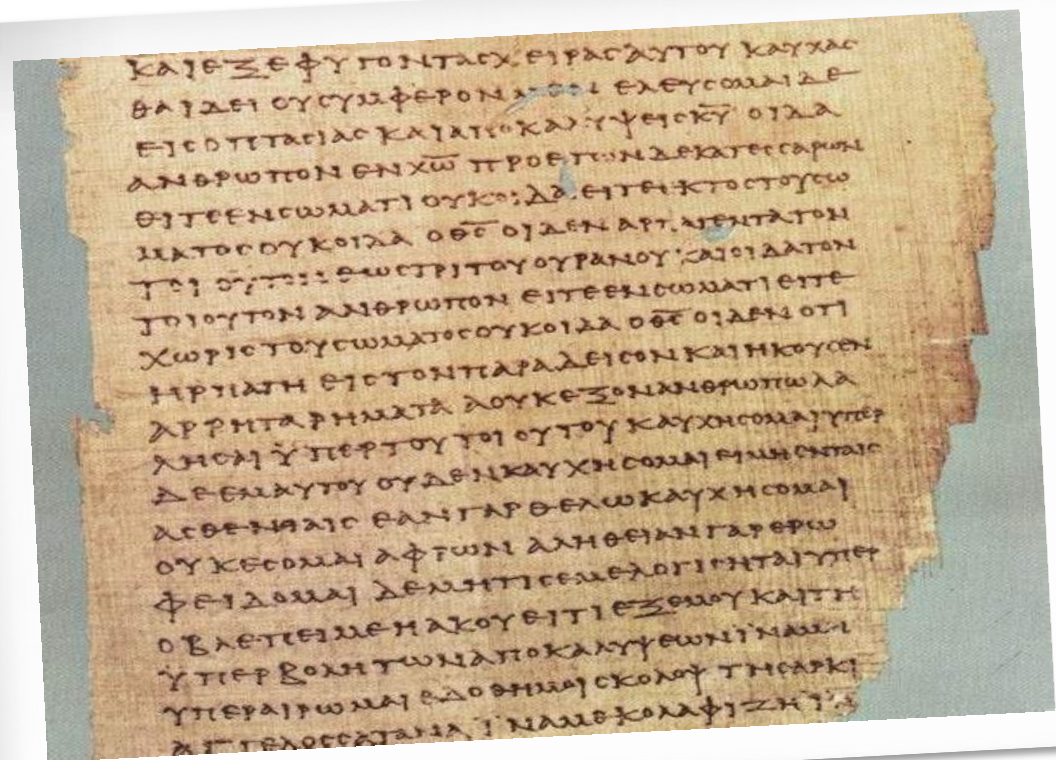 ΚΑΙ ΕΞΕΦΥΓΟΝ ΤΑϹ ΧΕΙΡΑϹ ΑΥΤΟΥ ΚΑΥΧΑϹ
ΘΑΙ ΔΕΙ ΟΥ ϹΥΜΦΕΡΟΝ ΕΛΕΥϹΟΜΑΙ ΔΕ
ΕΙϹ ΟΠΤΑϹΙΑϹ ΚΑΙ ΑΠΟΚΑΛΥΨΕΙϹ Κ̅Υ̅ ΟΙΔΑ
ΑΝΘΡΩΠΟΝ ΕΝ Χ̅Ω̅ ΠΡΟ ΕΤΩΝ ΔΕΚΑΤΕϹϹΑΡΩΝ
ΕΙΤΕ ΕΝ ϹΩΜΑΤΙ ΟΥΚ ΟΙΔΑ ΕΙΤΕ ΕΚΤΟϹ ΤΟΥ ϹΩ
ΜΑΤΟϹ ΟΥΚ ΟΙΔΑ Ο Θ̅Ϲ̅ ΟΙΔΕΝ ΑΡΠΑΓΕΝΤΑ ΤΟΝ
ΤΟΙΟΥΤΟΝ ΕΩϹ ΤΡΙΤΟΥ ΟΥΡΑΝΟΥ ΚΑΙ ΟΙΔΑ ΤΟΝ
ΤΟΙΟΥΤΟΝ ΑΝΘΡΩΠΟΝ ΕΙΤΕ ΕΝ ϹΩΜΑΤΙ ΕΙΤΕ
ΧΩΡΙϹ ΤΟΥ ϹΩΜΑΤΟϹ ΟΥΚ ΟΙΔΑ Ο Θ̅Ϲ̅ ΟΙΔΕΝ ΟΤΙ
ΗΡΠΑΓΗ ΕΙϹ ΤΟΝ ΠΑΡΑΔΕΙϹΟΝ ΚΑΙ ΗΚΟΥϹΕΝ
ΑΡΡΗΤΑ ΡΗΜΑΤΑ Α ΟΥΚ ΕΞΟΝ ΑΝΘΡΩΠΩ ΛΑ
ΛΗϹΑΙ ΫΠΕΡ ΤΟΥ ΤΟΙΟΥΤΟΥ ΚΑΥΧΗϹΟΜΑΙ ΥΠΕΡ
ΔΕ ΕΜΑΥΤΟΥ ΟΥΔΕΝ ΚΑΥΧΗϹΟΜΑΙ ΕΙ ΜΗ ΕΝ ΤΑΙϹ
ΑϹΘΕΝΕΙΑΙϹ ΕΑΝ ΓΑΡ ΘΕΛΩ ΚΑΥΧΗϹΟΜΑΙ
ΟΥΚ ΕϹΟΜΑΙ ΑΦΡΩΝ ΑΛΗΘΕΙΑΝ ΓΑΡ ΕΡΩ
ΦΕΙΔΟΜΑΙ ΔΕ ΜΗ ΤΙϹ ΕΜΕ ΛΟΓΙϹΗΤΑΙ ΥΠΕΡ
Ο ΒΛΕΠΕΙ ΜΕ Η ΑΚΟΥΕΙ ΤΙ ΕΞ ΕΜΟΥ ΚΑΙ ΤΗ
ΫΠΕΡΒΟΛΗ ΤΩΝ ΑΠΟΚΑΛΥΨΕΩΝ ΪΝΑ ΜΗ
ΥΠΕΡΑΙΡΩΜΑΙ ΕΔΟΘΗ ΜΟΙ ϹΚΟΛΟΨ ΤΗ ϹΑΡΚΙ
ΑΓΓΕΛΟϹ ϹΑΤΑΝΑ ΪΝΑ ΜΕ ΚΟΛΑΦΙΖΗ